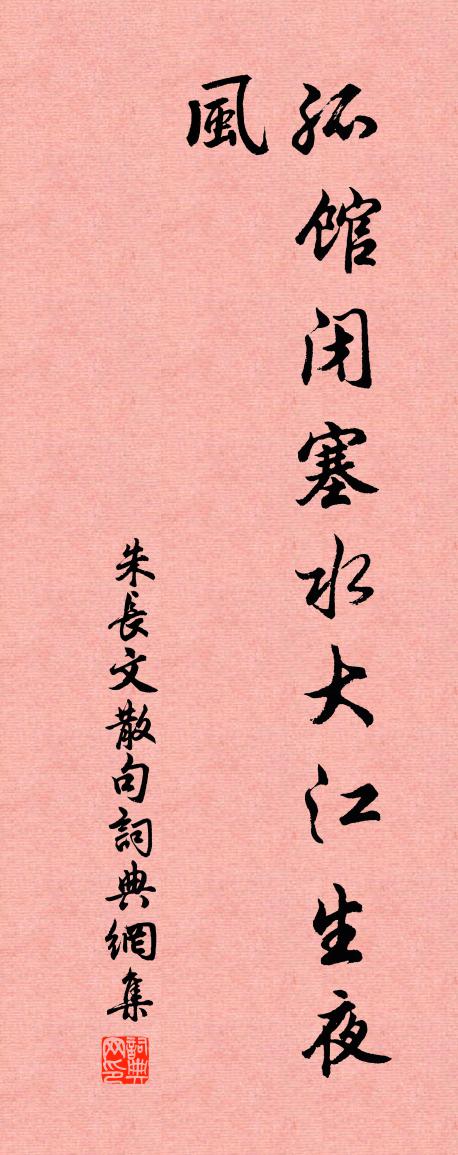 孤館闭塞水大江生夜
風
朱長文散句詞典網集
詞典网印